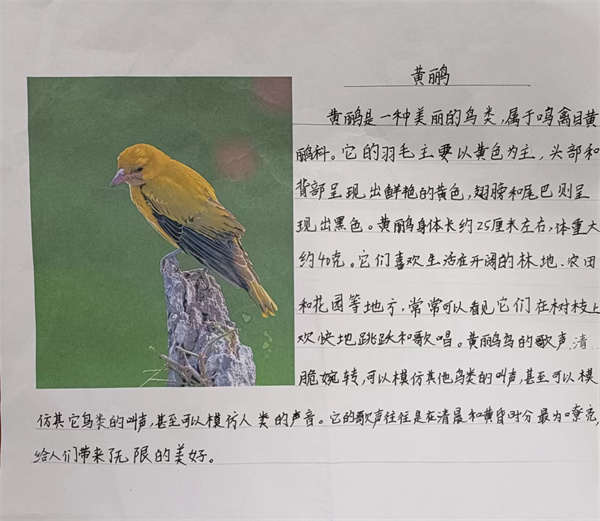 黄鹂
黄鹂是一种美丽的鸟类,属于鸣禽目黄
鹂科。它的羽毛主要以黄色为主,头部和
背部呈现出鲜艳的黄色,翅膀和尾巴则呈
现出黑色。黄鹂身体长约25厘米左右,体重大
约40克。它们喜欢生活在开阔的林地、农田
和花园等地方,常常可以看见它们在树枝上
欢快地跳跃和歌唱。黄鹂鸟的歌声清
脆婉转,可以模仿其他鸟类的叫声,甚至可以模
仿其它鸟类的叫声,甚至可以模仿人类的声音。它的歌声往往是在清晨和黄昏时分最为嘹亮,
给人们带来了无限的美好。